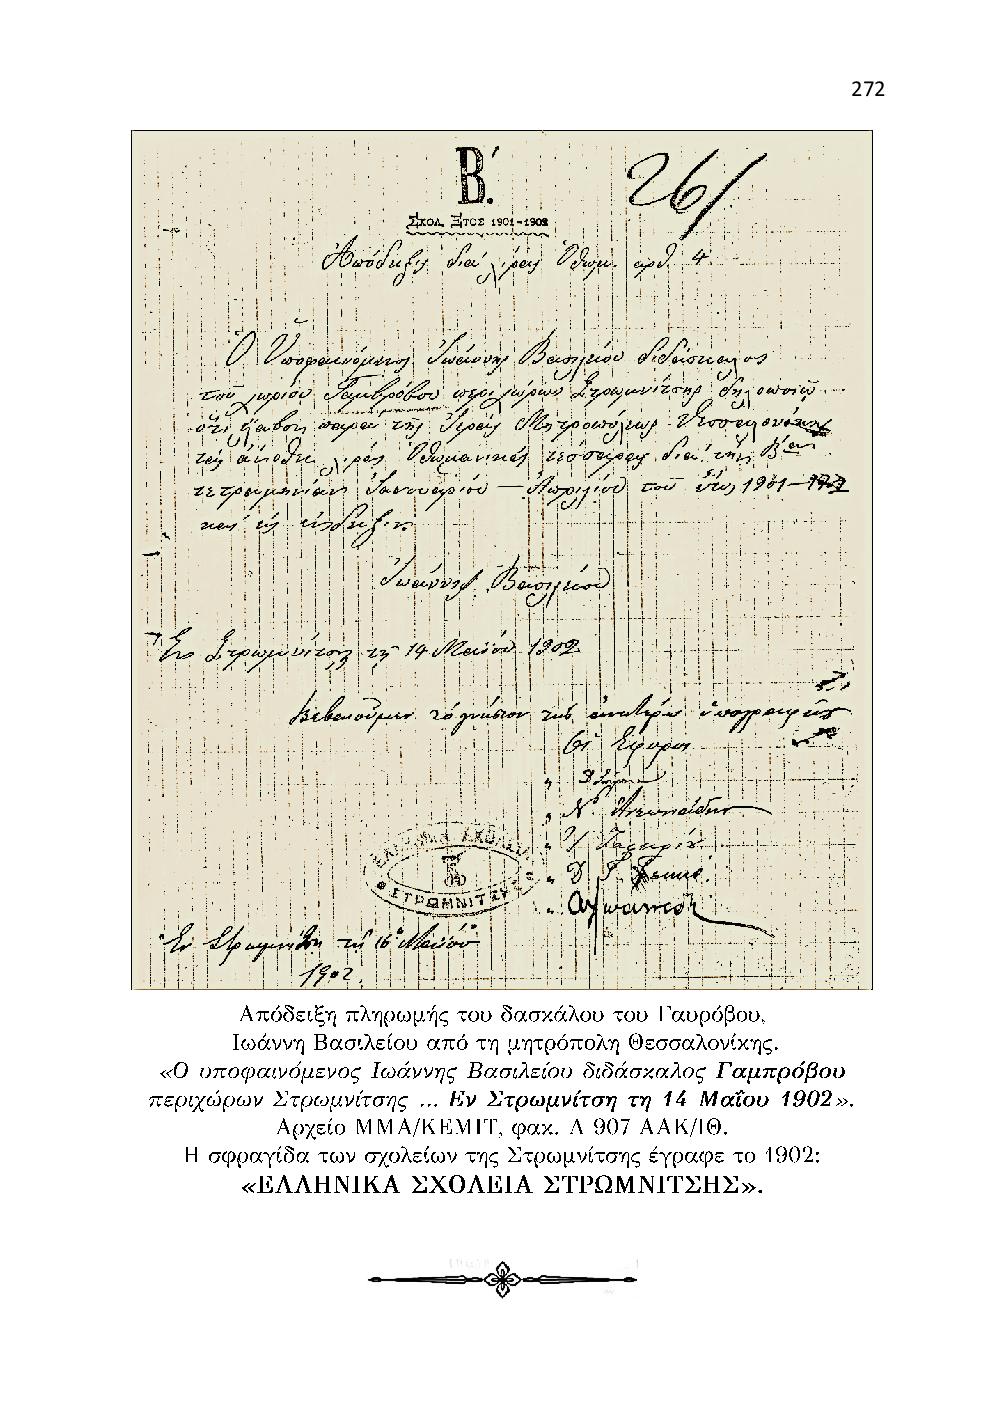 272
Β΄.
ΣΧΟΛ. ΕΤΟΣ 1901-1902
26/
Ἀπόδειξις διὰ λίρας Ὀθωμ. ἀρθ. 4
Ὁ Ὑποφαινόμενος Ἰωάννης Βασιλείου διδάσκαλος
τοῦ χωρίου Γαμβρόβου περιχώρων Στρωμνίτσης δηλοποιῶ
ὅτι ἔλαβον παρὰ τῆς Ἱερᾶς Μητροπόλεως Θεσσαλονίκης
τὰς ἄνωθι λίρας Ὀθωμανικὰς τέσσαρας διὰ τὴν Βαν
τετραμηνίαν Ἰανουαρίου – Ἀπριλίου τοῦ ἔτους 1901-1902
καὶ εἰς ἔνδειξιν
Ἰωάννης Βασιλείου
Ἐν Στρωμνίτσῃ τῇ 14 Μαΐου 1902
Βεβαιοῦμεν τὸ γνήσιον τῆς ἀνωτέρω ὑπογραφῆς
Οἱ Ἔφοροι
ΕΛΛΗΝΙΚΑ ΣΧΟΛΕΙΑ
ΣΤΡΩΜΝΙΤΣΗΣ
Ἐν Στρωμνίτσῃ τῇ 16 Μαΐου
1902.
Απόδειξη πληρωμής του δασκάλου του Γαυρόβου,
Ιωάννη Βασιλείου από τη μητρόπολη Θεσσαλονίκης.
«Ο υποφαινόμενος Ιωάννης Βασιλείου διδάσκαλος Γαμπρόβου
περιχώρων Στρωμνίτσης ... Εν Στρωμνίτση τη 14 Μαΐου 1902».
Αρχείο ΜΜΑ/ΚΕΜΙΤ, φακ. Λ 907 ΑΑΚ/ΙΘ.
Η σφραγίδα των σχολείων της Στρωμνίτσης έγραφε το 1902:
«ΕΛΛΗΝΙΚΑ ΣΧΟΛΕΙΑ ΣΤΡΩΜΝΙΤΣΗΣ».